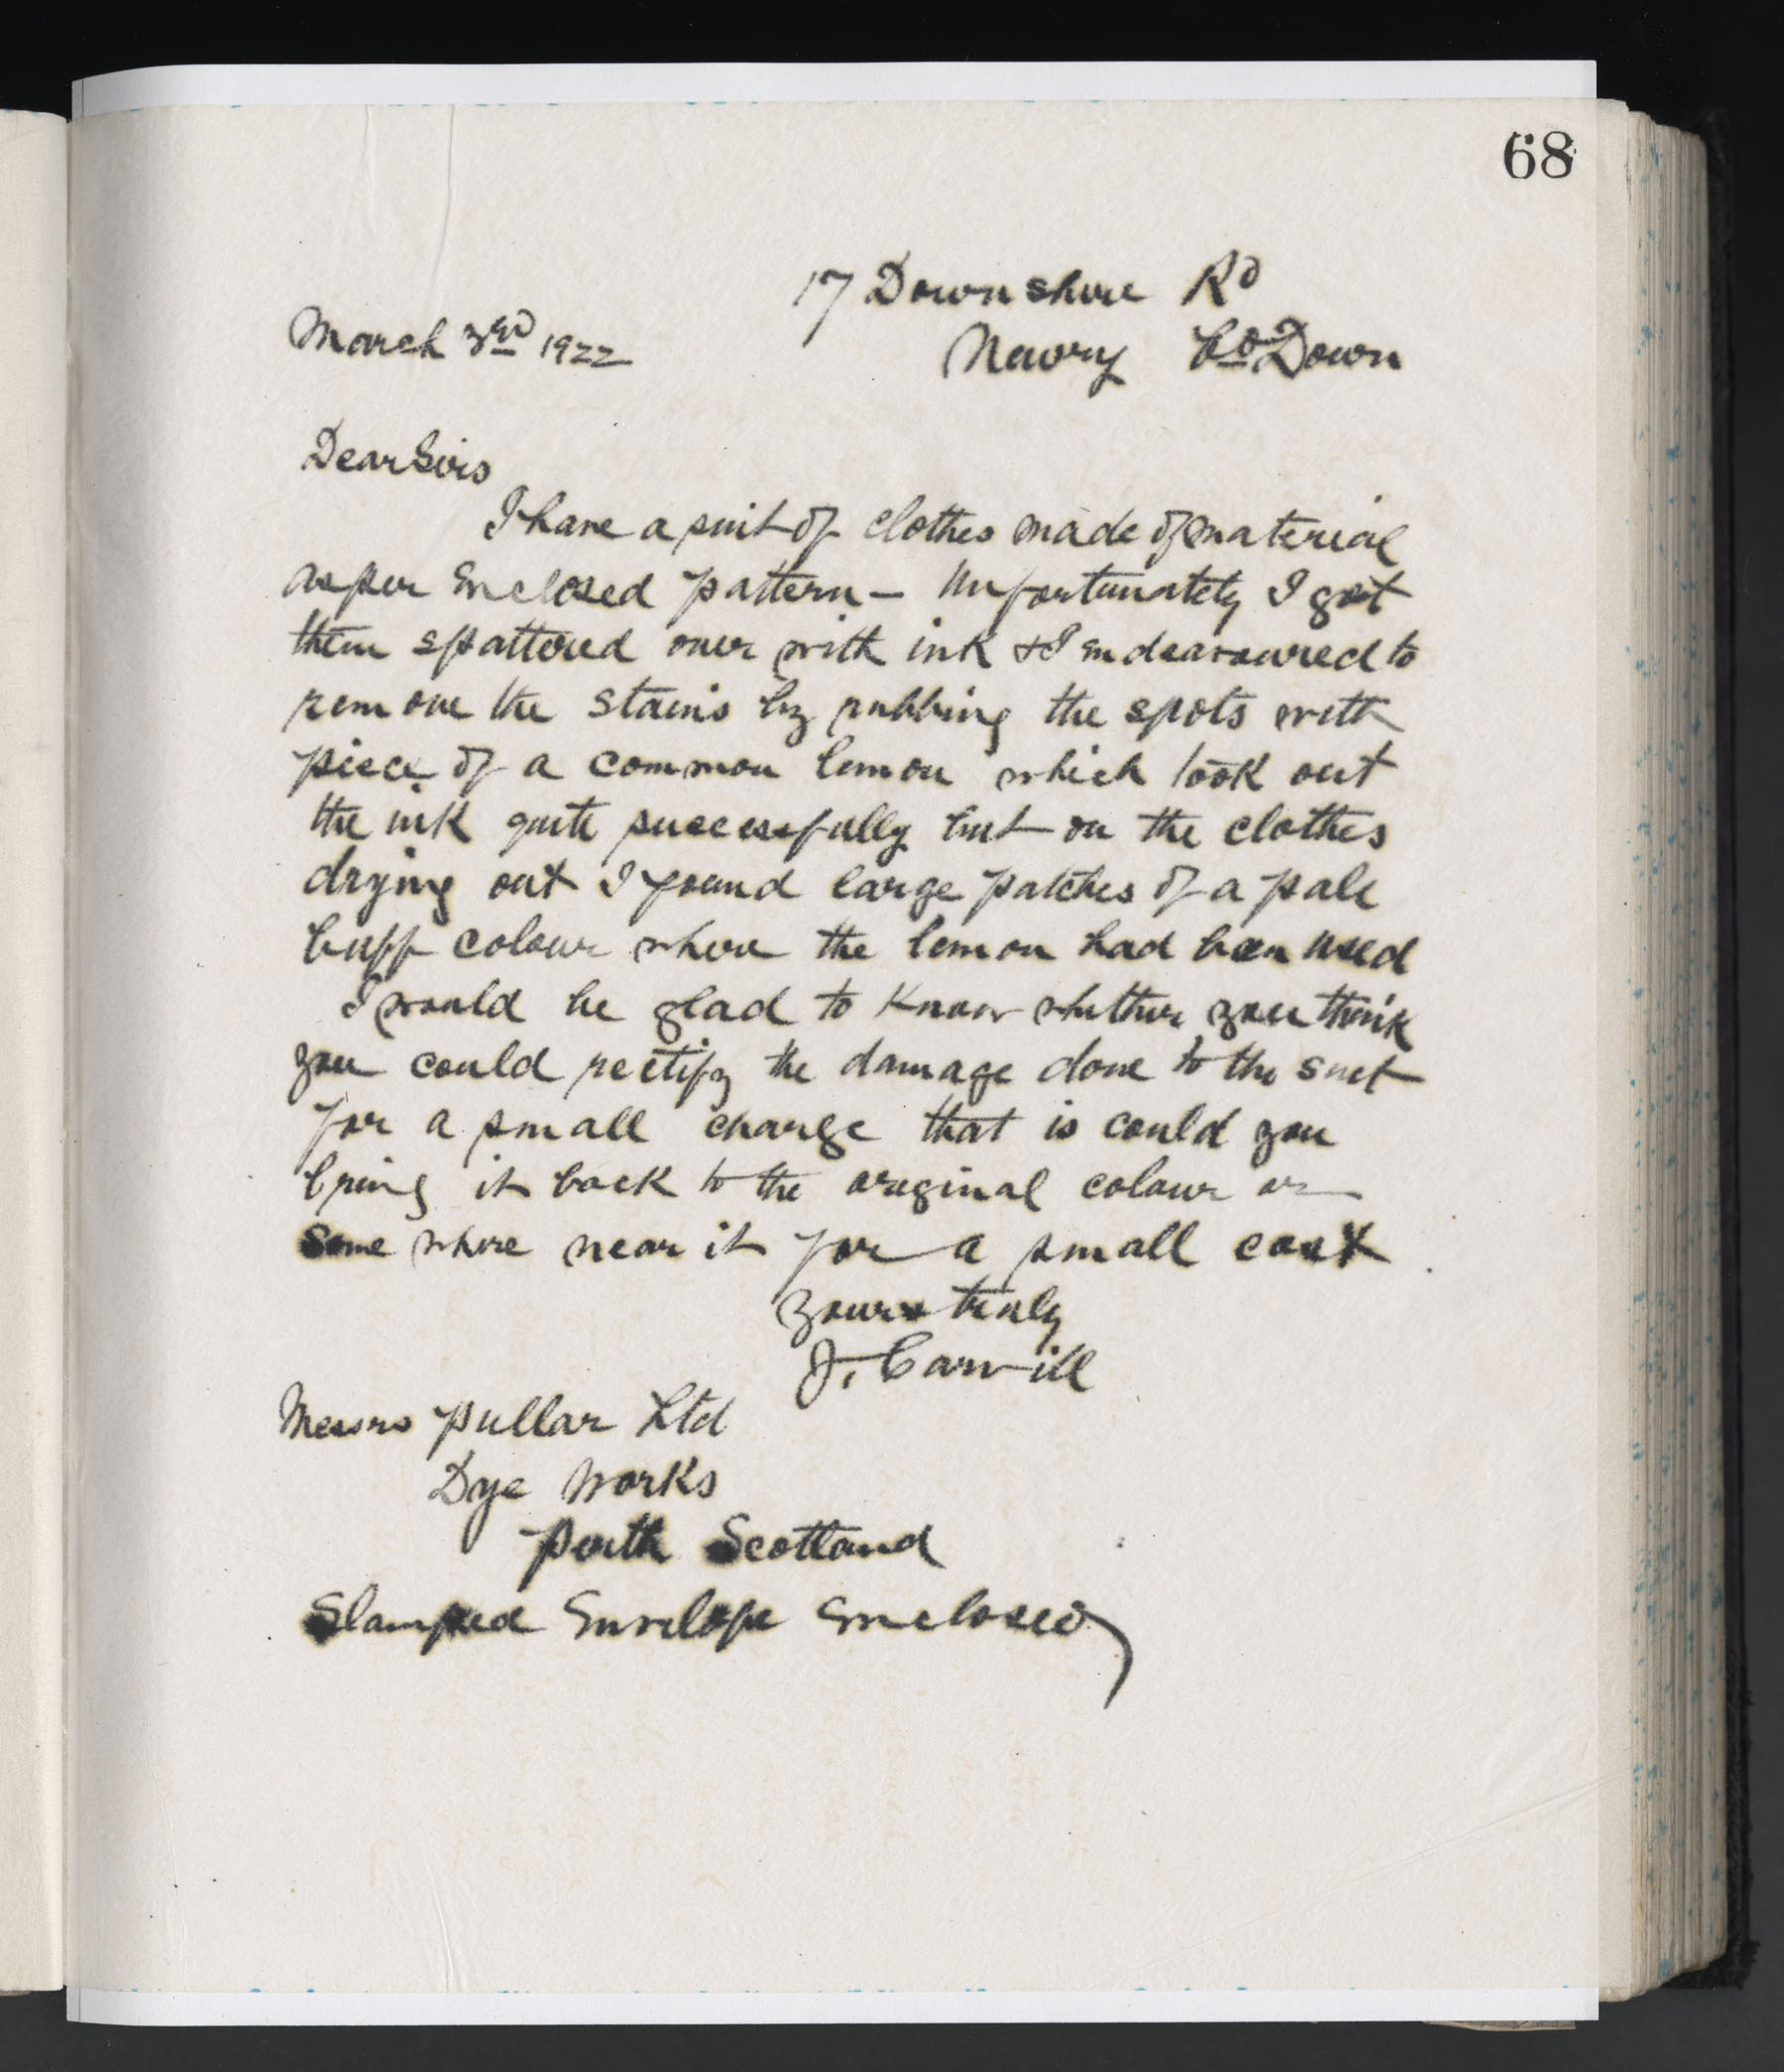 68
17 Downshire Rd
March 3rd 1922
Newry Co Down
Dear Sirs
I have a suit of clothes made of material
as per Enclosed pattern — Unfortunately I got
them spattered over with ink & I endeavoured to
remove the stains by rubbing the spots with
piece of a common lemon which took out
the ink quite successfully but on the clothes
drying out I found large patches of a pale
buff colour where the lemon had been used
I would be glad to know whether you think
you could rectify the damage done to the suit
for a small charge that is could you
bring it back to the original colour or
some where near it for a small cost
Yours truly
J. Carvill
Messrs Pullar Ltd
Dye Works
Perth Scotland
Stamped Envelope Enclosed